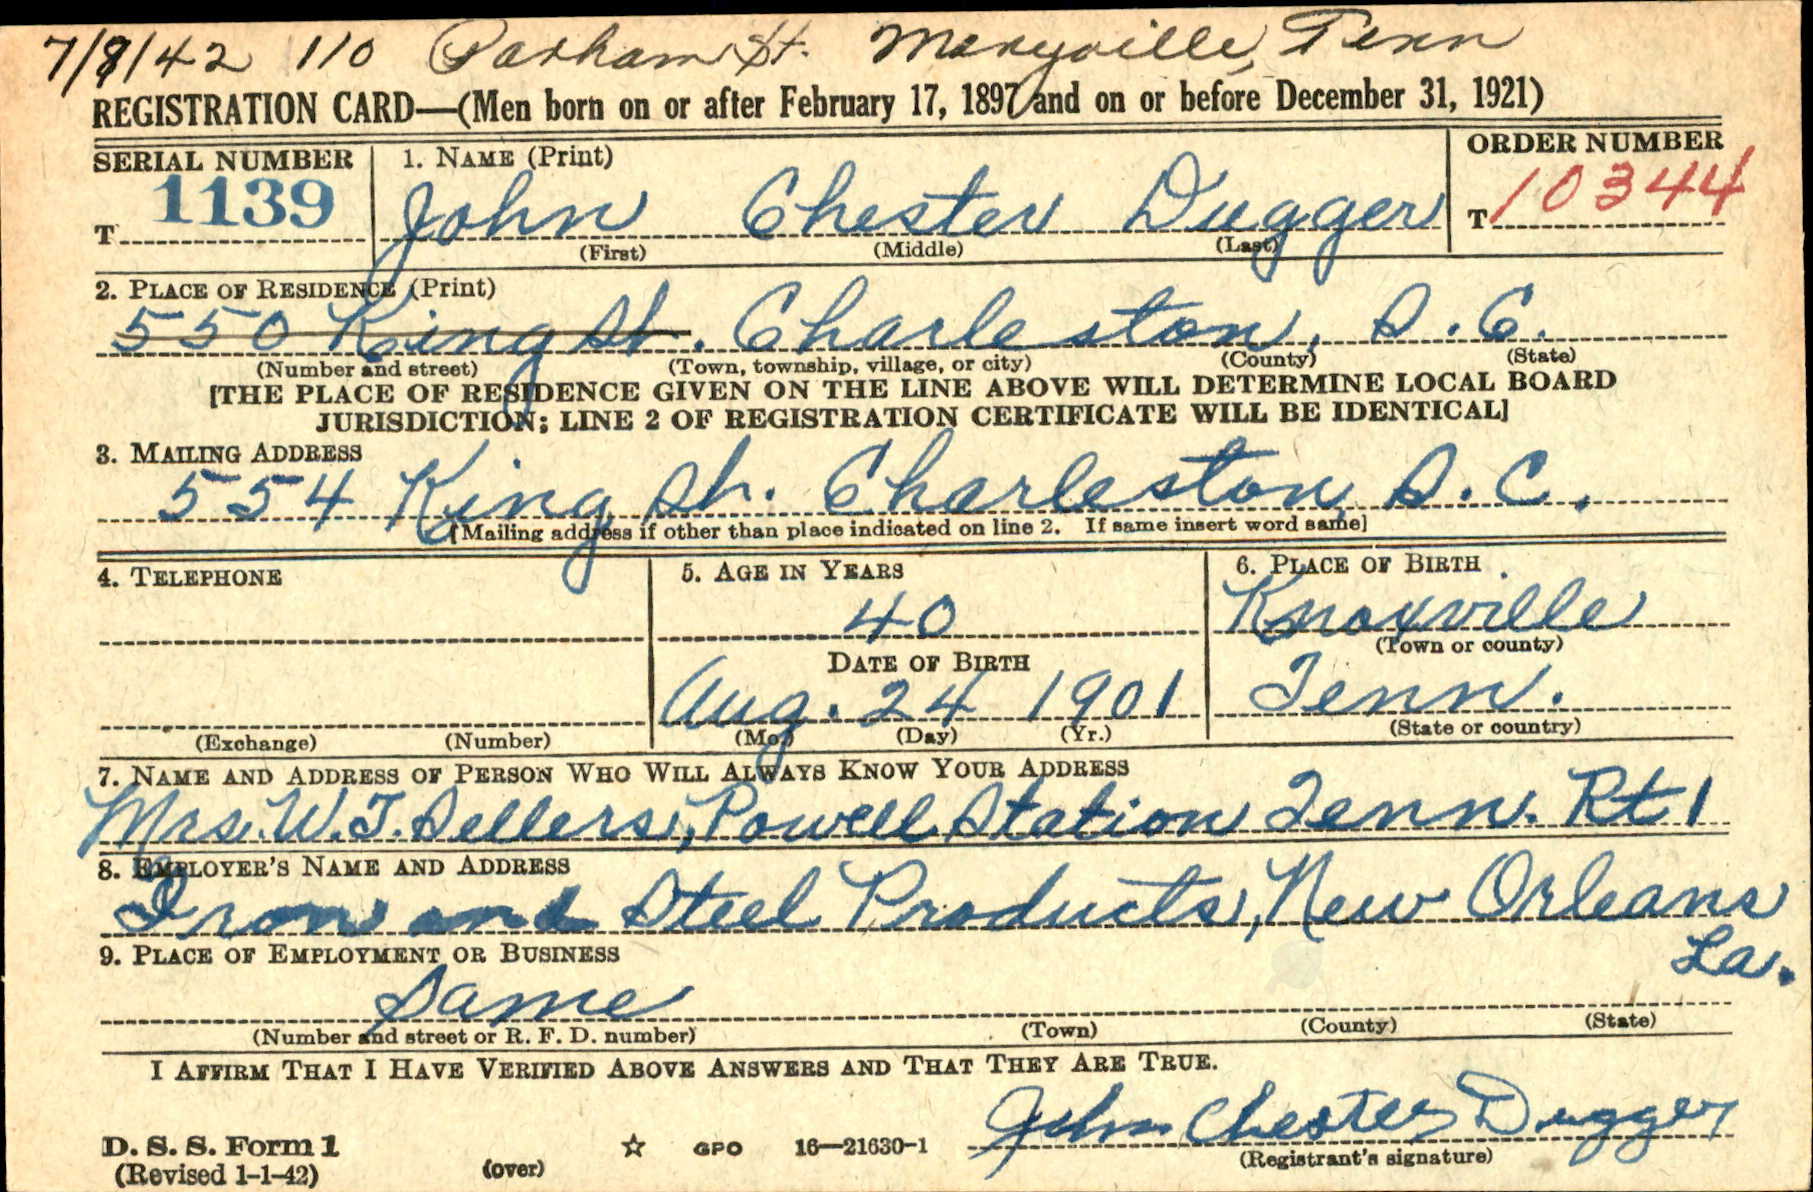 7/8/42 110 Parham St. Maryville, Tenn
REGISTRATION CARD—(Men born on or after February 17, 1897 and on or before December 31, 1921)
SERIAL NUMBER
T 1139
1. NAME (Print)
John Chester Dugger
(First) (Middle) (Last)
ORDER NUMBER
T 10344
2. PLACE OF RESIDENCE (Print)
550 King St. Charleston, S.C.
(Number and street) (Town, township, village, or city) (County) (State)
[THE PLACE OF RESIDENCE GIVEN ON THE LINE ABOVE WILL DETERMINE LOCAL BOARD
JURISDICTION; LINE 2 OF REGISTRATION CERTIFICATE WILL BE IDENTICAL]
3. MAILING ADDRESS
554 King St. Charleston, S.C.
[Mailing address if other than place indicated on line 2. If same insert word same]
4. TELEPHONE
(Exchange) (Number)
5. AGE IN YEARS
40
DATE OF BIRTH
Aug. 24 1901
(Mo.) (Day) (Yr.)
6. PLACE OF BIRTH
Knoxville
(Town or county)
Tenn.
(State or country)
7. NAME AND ADDRESS OF PERSON WHO WILL ALWAYS KNOW YOUR ADDRESS
Mrs. W.T. Sellers, Powell Station Tenn. Rt 1
8. EMPLOYER'S NAME AND ADDRESS
Iron and Steel Products, New Orleans
La.
9. PLACE OF EMPLOYMENT OR BUSINESS
Same
(Number and street or R. F. D. number) (Town) (County) (State)
I AFFIRM THAT I HAVE VERIFIED ABOVE ANSWERS AND THAT THEY ARE TRUE.
John Chester Dugger
(Registrant's signature)
D. S. S. Form 1
(Revised 1-1-42) (over) ☆ GPO 16—21630-1